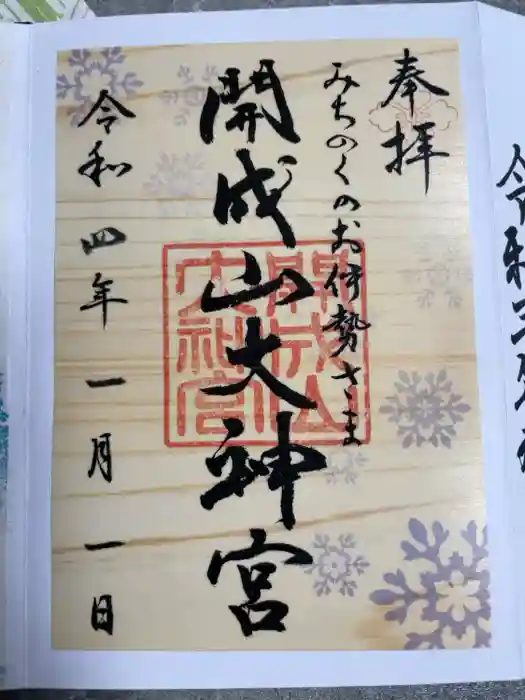 奉拝
みちのくのお伊勢さま
開成山大神宮
開成山大神宮
令和四年一月一日